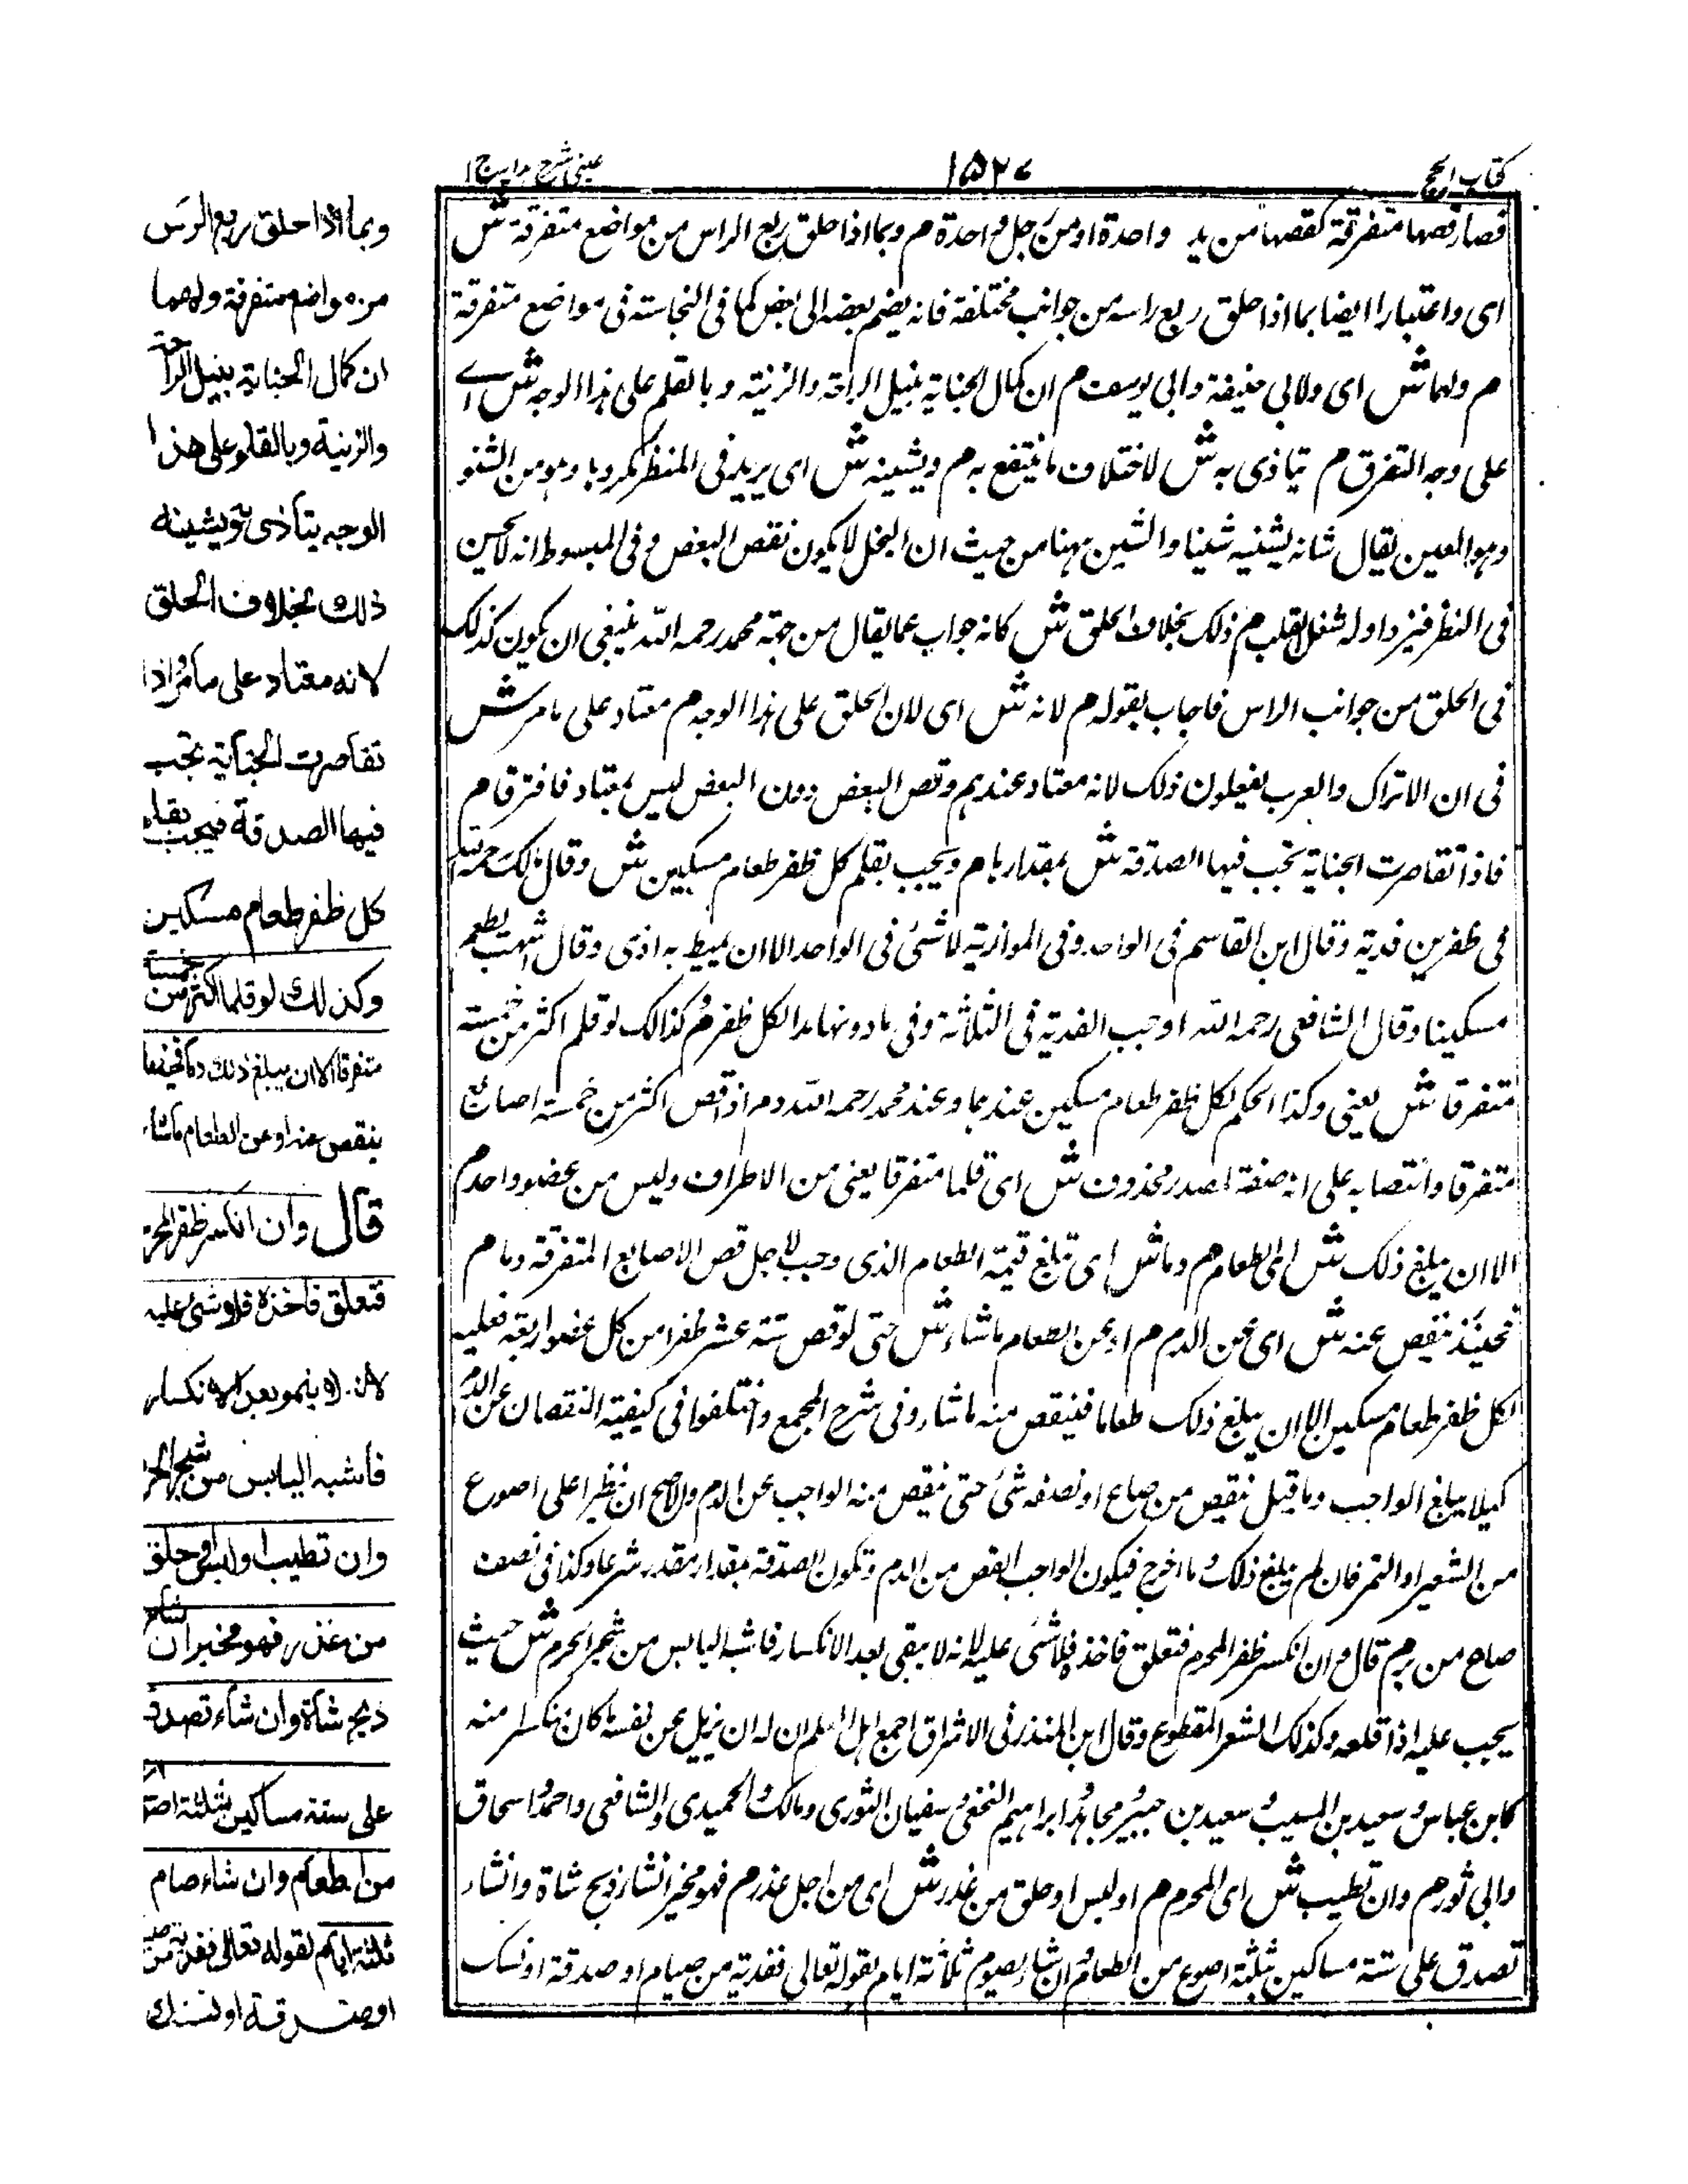 كتاب الحج
١٥٢٧
عينى شرح هداية ج ١
فصار قصها متفرقة كقصها من يد واحدة او من رجل واحدة م وبما اذا حلق ربع الراس من مواضع متفرقة ش
اى واعتبارا ايضا بما اذا حلق ربع راسه من جوانب مختلفة فانه يضم بعضه الى بعض كما فى النجاسة فى مواضع متفرقة
م ولهما ش اى ولابي حنيفة وابى يوسف م ان كمال الجناية بنيل الراحة والزينة وبالقلم على هذا الوجه ش اے
على وجه التفرق م يتاذى به ش لاختلاف ما ينتفع به م ويشينه ش اى يريد فى المنظر مكروها وهو من الشنو
وهو العين يقال شانه يشينه شينا والشين ههنا من حيث ان البخل لا يكون نقص البعض وفى المبسوط انه لا يحسن
فى النظر فيزداد له شغل القلب م ذلك بخلاف الحلق ش كانه جواب عما يقال من جهة محمد رحمه الله ينبغى ان يكون كذلك
فى الحلق من جوانب الراس فاجاب بقوله م لانه ش اى لان الحلق على هذا الوجه م معتاد على ما مر ش
فى ان الاتراك والعرب يفعلون ذلك لانه معتاد عندهم وقص البعض دون البعض ليس بمعتاد فافترقا م
فاذا تقاصرت الجناية تجب فيها الصدقة ش بمقدارها م ويجب بقلم كل ظفر طعام مسكين ش وقال مالك رحمه الله
فى ظفرين فدية وقال ابن القاسم فى الواحد وفى الموازية لا شئ فى الواحد الا ان يميط به اذى وقال اشهب يطعم
مسكينا وقال الشافعى رحمه الله اوجب الفدية فى الثلاثة وفى ما دونها مدا لكل ظفر م وكذالك لو قلم اكثر من خمسة
متفرقا ش يعنى وكذا الحكم لكل ظفر طعام مسكين عندهما وعند محمد رحمه الله دم اذا قص اكثر من خمسة اصابع
متفرقا وانتصابه على انه صفة لمصدر محذوف ش اى قلما متفرقا يعنى من الاطراف وليس من عضو واحد م
الا ان يبلغ ذلك ش اى الطعام م دما ش اى تبلغ قيمة الطعام الذى وجب لاجل قص الاصابع المتفرقة دما م
فحينئذ ينقص عنه ش اى عن الدم م او عن الطعام ما شاء ش حتى لو قص ستة عشر ظفرا من كل عضو اربعة فعليه
لكل ظفر طعام مسكين الا ان يبلغ ذلك طعاما فينقص منه ما شاء وفى شرح المجمع واختلفوا فى كيفية النقصان عن الدم
كيلا يبلغ الواجب دما قيل ينقص من صاع او نصفه شئ حتى ينقص منه الواجب عن الدم والاصح ان ينظر اعلى اصوع
من الشعير او التمر فان لم يبلغ ذلك دما اخرج فيكون الواجب انقص من الدم وتكون الصدقة مقدار مقدر شرعا وكذا فى نصف
صاع من بر م قال وان انكسر ظفر المحرم فتعلق فاخذه فلا شئى عليه لانه لا يبقى بعد الانكسار فاشبه اليابس من شجر الحرم ش حيث
يجب عليه اذا قلعه وكذلك الشعر المقطوع وقال ابن المنذر فى الاشراق اجمع اهل العلم ان له ان يزيل عن نفسه ما كان منكسرا منه
كابن عباس وسعيد بن المسيب وسعيد بن جبير ومجاهد وابراهيم النخعى وسفيان الثورى ومالك والحميدى والشافعى واحمد واسحاق
وابى ثور م وان تطيب ش اى المحرم م او لبس او حلق من عذر ش اى من اجل عذر م فهو مخير ان شاء ذبح شاة وان شاء
تصدق على ستة مساكين بثلثة اصوع من الطعام وان شاء يصوم ثلاثة ايام لقوله تعالى ففدية من صيام او صدقة او نسك
وبما اذا حلق ربع الرس
من مواضع متفرقة ولهما
ان كمال الجناية بنيل الراحة
والزينة وبالقلم على هذا
الوجه يتأذى به ويشينه
ذلك بخلاف الحلق
لانه معتاد على ما مر واذا
تقاصرت الجناية تجب
فيها الصدقة فيجب بقلم
كل ظفر طعام مسكين
وكذلك لو قلم اكثر من خمسة
متفرقا الا ان يبلغ ذلك دما فحينئذ
ينقص عنه او عن الطعام ما شاء
قال وان انكسر ظفر المحرم
فتعلق فاخذه فلا شئ عليه
لانه لا ينمو بعد الانكسار
فاشبه اليابس من شجر الحرم
وان تطيب او لبس او حلق
من عذر فهو مخير ان شاء
ذبح شاة وان شاء تصدق
على ستة مساكين بثلثة اصوع
من الطعام وان شاء صام
ثلثة ايام لقوله تعالى ففدية من صيام
او صدقة او نسك